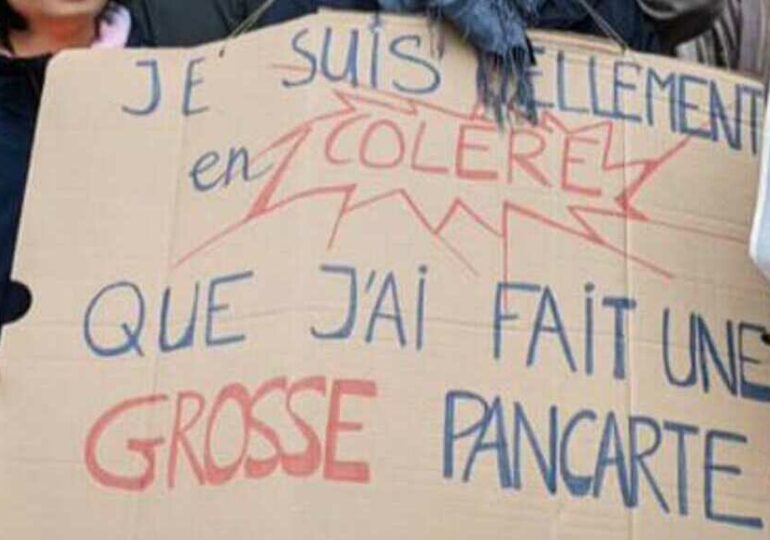 JE SUiS TELLEMENT
en COLÈRE
QUE J'Ai FAiT UNE
GROSSE PANCARTE